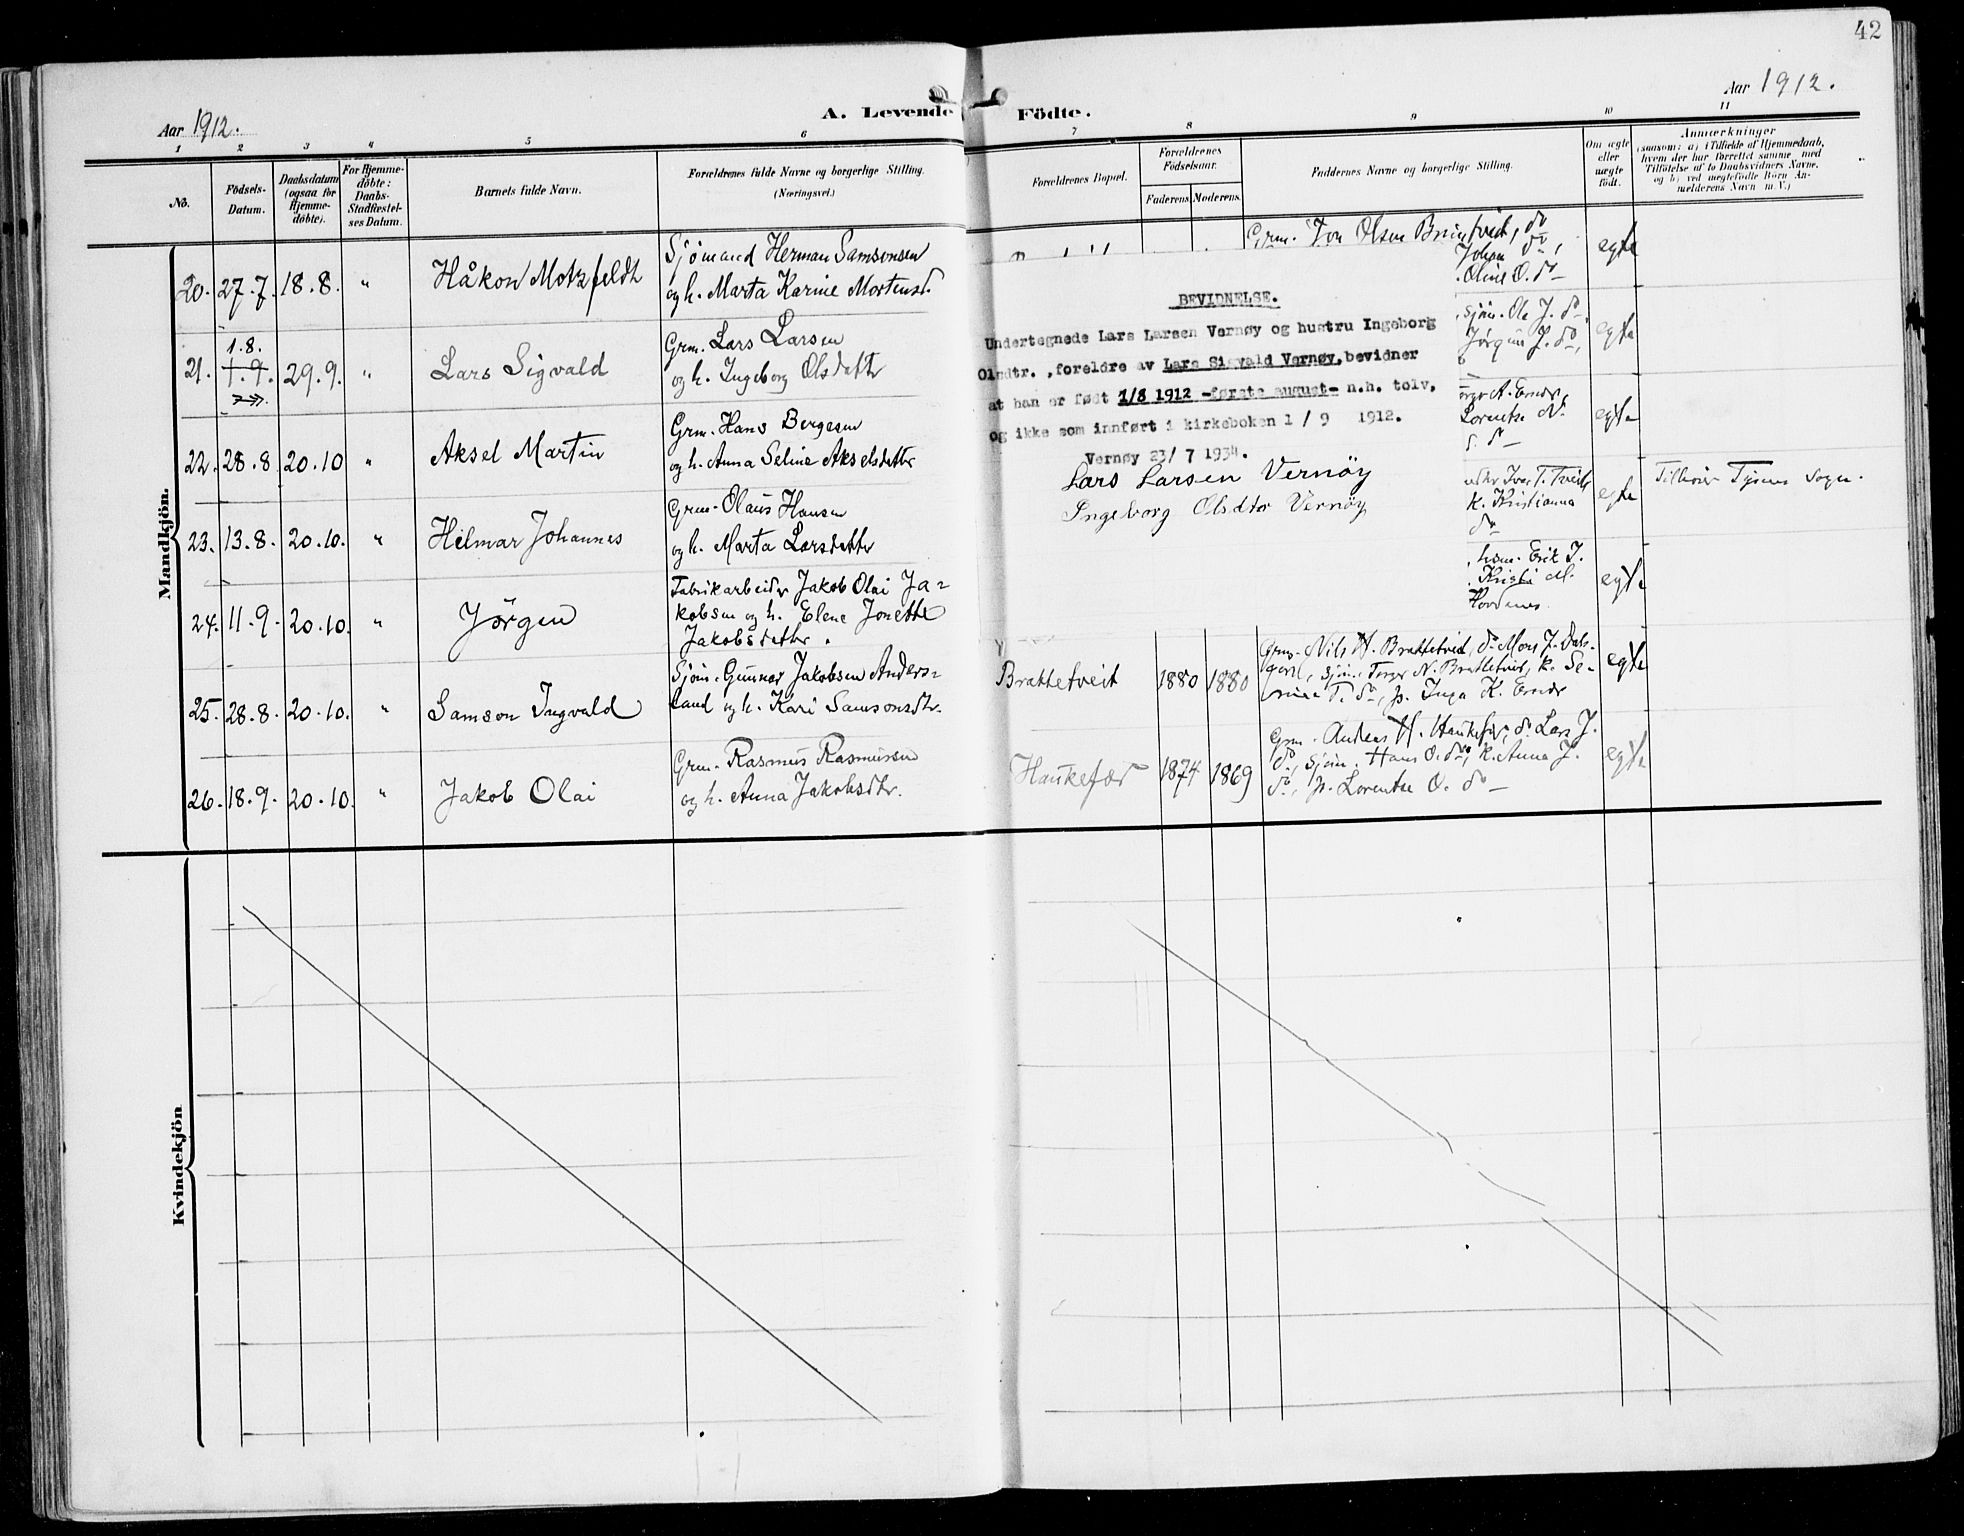 42
Aar 1912.
A. Levende Födte.
Aar 1912.
1 2 3 4 5 6 7 8 9 10 11
No.
Födsels-
Datum.
Daabsdatum
(ogsaa for
Hjemme-
døbte).
For Hjemme-
døbte:
Daabs-
Stadfæstel-
ses Datum.
Barnets fulde Navn.
Forældrenes fulde Navne og borgerlige Stilling.
(Næringsvei.)
Forældrenes Bopæl.
Forældrenes
Födselsaar.
Faderens. Moderens.
Faddernes Navne og borgerlige Stilling.
Om ægte
eller
uægte
födt.
Anmærkninger
(saasom: a) i Tilfælde af Hjemmedaab,
hvem der har forrettet samme med
Tilföielse af to Daabsvidners Navne.
og b) ved uægtefödte Börn An-
melderens Navn m. V.)
Mandkjön.
20. 27.7. 18.8. " Håkon Motzfeldt
Sjömand Herman Samsonsen
og h. Marta Karine Mortensd.
Grm. Olsen
Johan do,
Oline O. do
egte
21. 1.8.
1.9. 29.9. " Lars Sigvald
Grm. Lars Larsen
og h. Ingeborg Olsdatter
Sjöm. Ole J. do,
egte
22. 28.8. 20.10 " Aksel Martin
Grm. Hans Bergesen
og h. Anna Seline Akselsdatter
Lorentse
egte
23. 13.8. 20.10. " Hilmar Johannes
Grm. Olaus Hansen
og h. Marta Larsdatter
Iver T. Tveit,
k. Kristianna
do
egte
Tilhører Tysnes Sogn.
24. 11.9. 20.10. " Jörgen
Fabrikarbeider Jakob Olai Ja-
kobsen og h. Elene Jonette
Jakobsdatter.
Erik J.
Hovdenes.
egte
BEVIDNELSE.
Undertegnede Lars Larsen Vernøy og hustru Ingeborg
Olsdtr. ,foreldre av Lars Sigvald Vernøy, bevidner
at han er født 1/8 1912 -første august- n.h. tolv,
og ikke som innført i kirkeboken 1/9 1912.
Vernøy 23/7 1934.
Lars Larsen Vernöy
Ingeborg Olsdtor Vernöy
25. 28.8. 20.10. " Samson Ingvald
Sjöm. Gunnar Jakobsen Anders-
land og h. Kari Samsonsdtr.
Brattetveit 1880 1880
Grm. Nils H. Brattetveit, do Mons J. Dals-
Sjöm. N. Brattetveit, k. Se-
T. do, p. Inga K.
egte
26. 18.9. 20.10. " Jakob Olai
Grm. Rasmus Rasmussen
og h. Anna Jakobsdtr.
Haukefær 1874 1869
Grm. Anders H. Haukefær, do Lars J.
do, Sjöm. Hans O. do, k. Anna J.
do, p. Lorentse O. do
egte
Kvindekjön